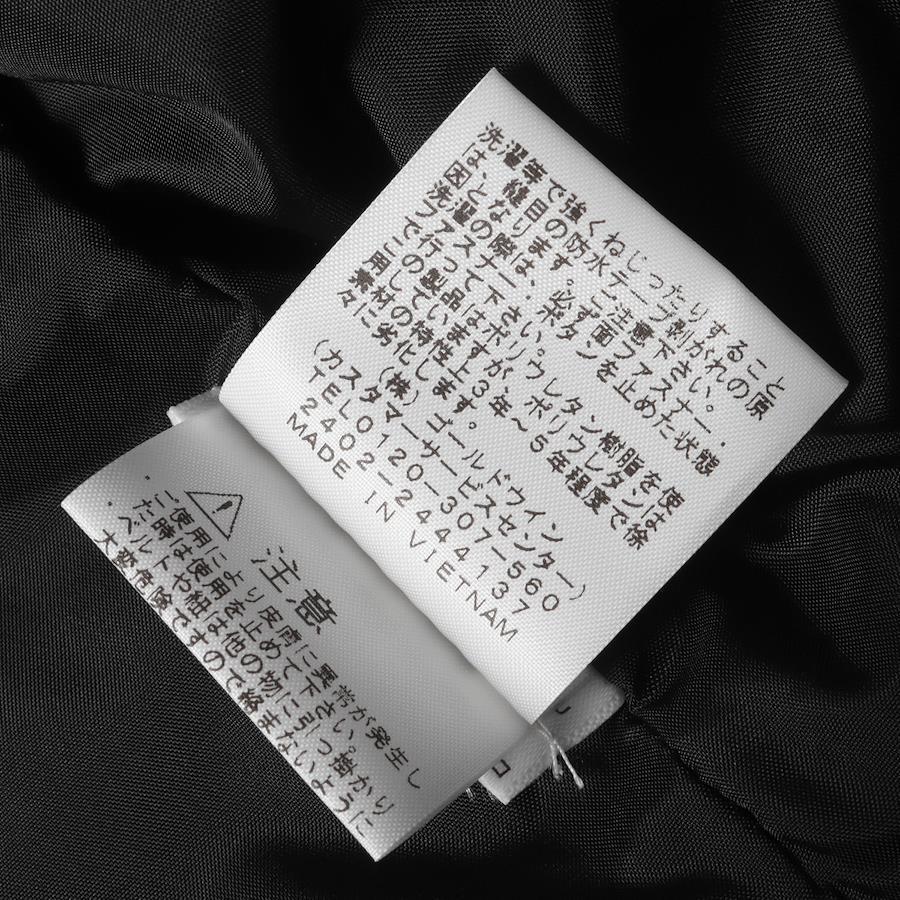 洗濯等で強くねじったりすること
は、縫目の防水テープ剥がれの原
因となります。ご注意下さい。
洗濯の際は、必ず面ファスナー・
ファスナー・ボタンを止めた状態
で行って下さい。
この製品はポリウレタン樹脂を使
用していますが、ポリウレタンは
素材の特性上3年～5年程度で徐
々に劣化します。
(株)ゴールドウイン
(カスタマーサービスセンター)
TEL0120-307-560
2402-2444137
MADE IN VIETNAM
注意
・ご使用により皮膚に異常が発生し
た時は使用を止めて下さい。
・ベルトや紐は他の物に引っ掛かり
大変危険ですので絡まないように